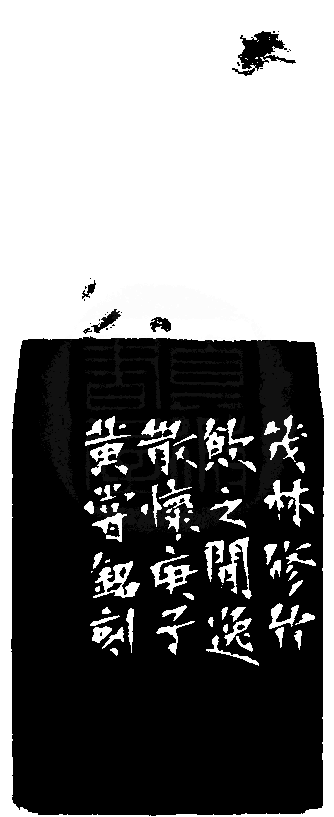 茂林修竹
飲之閒逸
散懷庚子
黃嘗銘刻